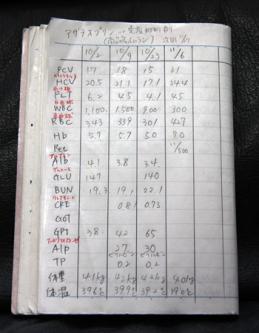 アザチオプリン 免疫抑制剤
10/2 10/9 10/23 11/6
PCV 17 18 15 21
HCV 20.5 21.1 17.1 24.4
PLT 6.2 4.5 4.1 4.5
WBC 1,100 1,500 800 300
RBC 343 339 301 427
Hb 5.7 5.7 5.0 8.0
Rec 11/500
Alb 4.1 3.8 3.4
GLU 147 140
BUN 19.3 19.1 22.1
CRE 0.81 0.93
GOT
GPT 38 42 65
Alp 27 30
TP 0.2 0.2
体重 4.1kg 4.2kg 4.2kg 4.01kg
体温 39.6℃ 39.9℃ 39.2℃